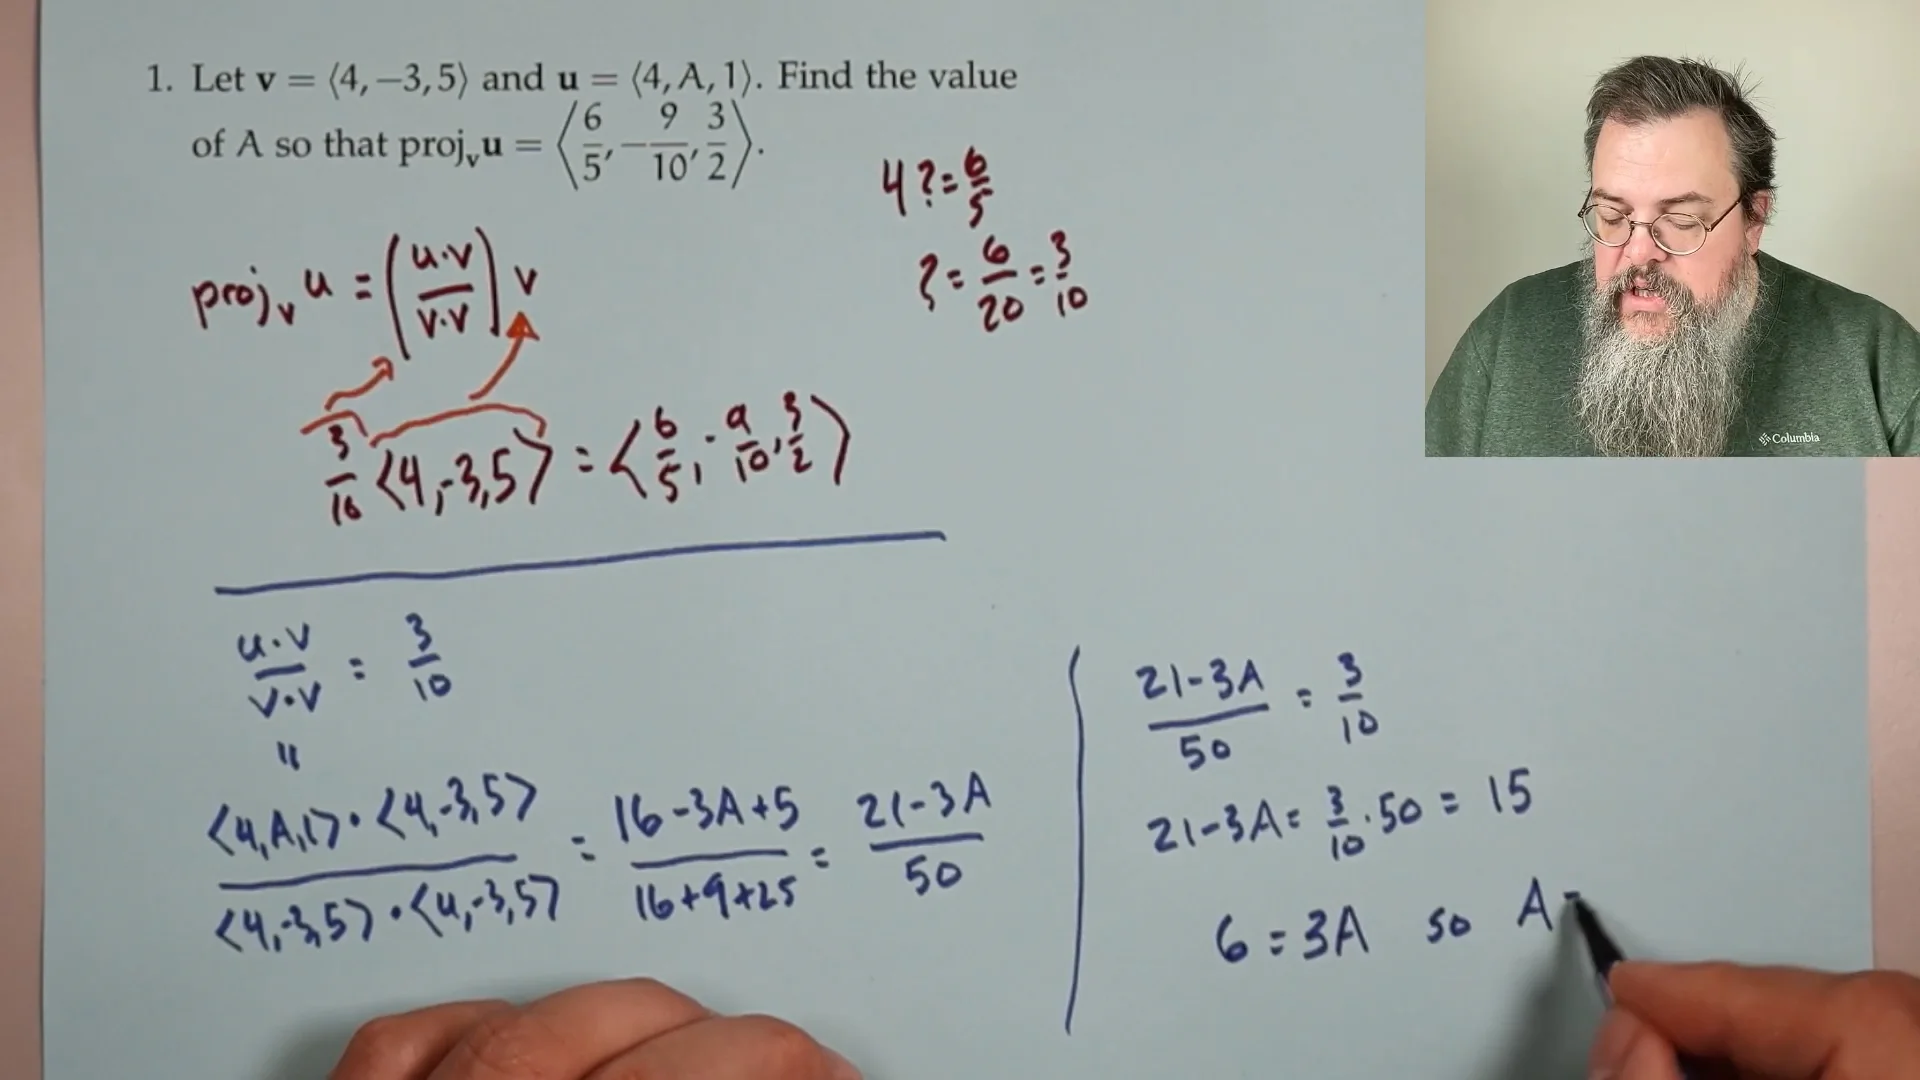 1. Let v = ⟨4, −3, 5⟩ and u = ⟨4, A, 1⟩. Find the value
of A so that proj_v u = ⟨6/5, −9/10, 3/2⟩.
4 ? = 6/5
? = 6/20 = 3/10
proj_v u = (u·v / v·v) v
3/10 ⟨4, -3, 5⟩ = ⟨6/5, -9/10, 3/2⟩
u·v / v·v = 3/10
"
⟨4, A, 1⟩ · ⟨4, -3, 5⟩ / ⟨4, -3, 5⟩ · ⟨4, -3, 5⟩ = 16-3A+5 / 16+9+25 = 21-3A / 50
21-3A / 50 = 3/10
21-3A = 3/10 · 50 = 15
6 = 3A so A =
Columbia